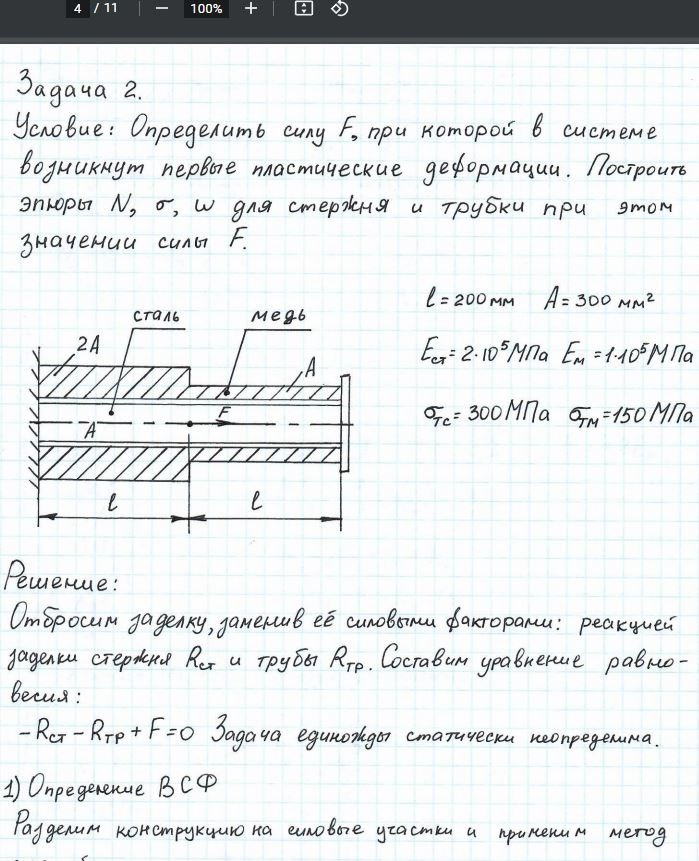 4 / 11 100%
Задача 2.
Условие: Определить силу F, при которой в системе
возникнут первые пластические деформации. Построить
эпюры N, σ, w для стержня и трубки при этом
значении силы F.
l = 200 мм A = 300 мм²
сталь медь
2A A
Eст = 2·10⁵ МПа Eм = 1·10⁵ МПа
σтс = 300 МПа σтм = 150 МПа
F
A
l l
Решение:
Отбросим заделку, заменив её силовыми факторами: реакцией
заделки стержня Rст и трубы Rтр. Составим уравнение равно-
весия:
-Rст - Rтр + F = 0 Задача единожды статически неопределима.
1) Определение ВСФ
Разделим конструкцию на силовые участки и применим метод